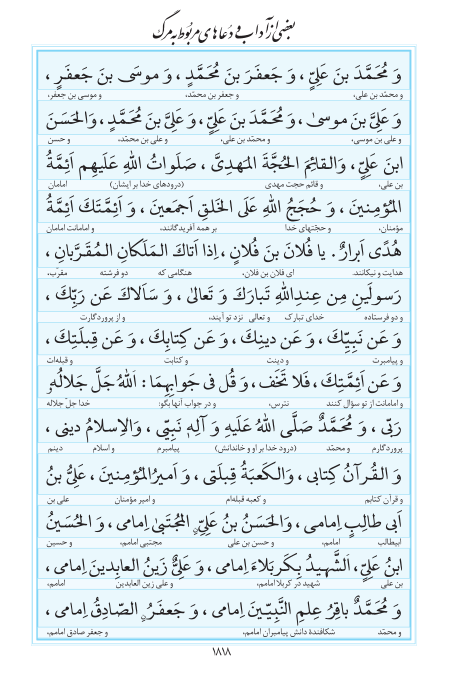 بعضی از آداب و دُعاهای مربُوط به مرگ
وَ مُحَمَّدَ بنَ عَلِيٍّ ، وَ جَعفَرَ بنَ مُحَمَّدٍ ، وَ موسَى بنَ جَعفَرٍ ،
و محمّد بن علی، و جعفر بن محمّد، و موسی بن جعفر،
وَ عَلِيَّ بنَ موسىٰ ، وَ مُحَمَّدَ بنَ عَلِيٍّ ، وَ عَلِيَّ بنَ مُحَمَّدٍ ، وَالحَسَنَ
و علی بن موسی، و محمّد بن علی، و علی بن محمّد، و حسن
ابنَ عَلِيٍّ ، وَالقائِمَ الحُجَّةَ المَهدِيَّ ، صَلَواتُ اللهِ عَلَيهِم اَئِمَّةُ
بن علی، و قائم حجت مهدی (درودهای خدا بر ایشان) امامان
المُؤمِنينَ ، وَ حُجَجُ اللهِ عَلَى الخَلقِ اَجمَعينَ ، وَ اَئِمَّتَكَ اَئِمَّةُ
مؤمنان، و حجّتهای خدا بر همه آفریدگانند، و امامانت امامان
هُدًى اَبرارٌ . يا فُلانَ بنَ فُلانٍ ، اِذا اَتاكَ المَلَكانِ المُقَرَّبانِ ،
هدایت و نیکانند. ای فلان بن فلان، هنگامی که دو فرشته مقرّب،
رَسولَينِ مِن عِندِاللهِ تَبارَكَ وَ تَعالىٰ ، وَ سَاَلاكَ عَن رَبِّكَ ،
و دو فرستاده خدای تبارک و تعالی نزد تو آیند، و از پروردگارت
وَ عَن نَبِيِّكَ ، وَ عَن دينِكَ ، وَ عَن كِتابِكَ ، وَ عَن قِبلَتِكَ ،
و پیامبرت و دینت و کتابت و قبله‌ات
وَ عَن اَئِمَّتِكَ ، فَلا تَخَف ، وَ قُل فى جَوابِهِما : اَللهُ جَلَّ جَلالُهُ
و امامانت از تو سؤال کنند نترس، و در جواب آنها بگو: خدا جلّ جلاله
رَبّى ، وَ مُحَمَّدٌ صَلَّى اللهُ عَلَيهِ وَ آلِهٖ نَبِيّى ، وَالاِسلامُ دينى ،
پروردگارم و محمّد (درود خدا بر او و خاندانش) پیامبرم و اسلام دینم
وَ القُرآنُ كِتابى ، وَالكَعبَةُ قِبلَتى ، وَ اَميرُ المُؤمِنينَ ، عَلِيُّ بنُ
و قرآن کتابم و کعبه قبله‌ام و امیر مؤمنان علی بن
اَبى طالِبٍ اِمامى ، وَالحَسَنُ بنُ عَلِيٍّ المُجتَبىٰ اِمامى ، وَ الحُسَينُ
ابیطالب امامم، و حسن بن علی مجتبی امامم، و حسین
ابنُ عَلِيٍّ ، اَلشَّهيدُ بِكَربَلاءَ اِمامى ، وَ عَلِيٌّ زَينُ العابِدينَ اِمامى ،
بن علی شهید در کربلا امامم، و علی زین العابدین امامم،
وَ مُحَمَّدٌ باقِرُ عِلمِ النَّبِيّينَ اِمامى ، وَ جَعفَرٌ الصّادِقُ اِمامى ،
و محمّد شکافندهٔ دانش پیامبران امامم، و جعفر صادق امامم،
۱۸۱۸